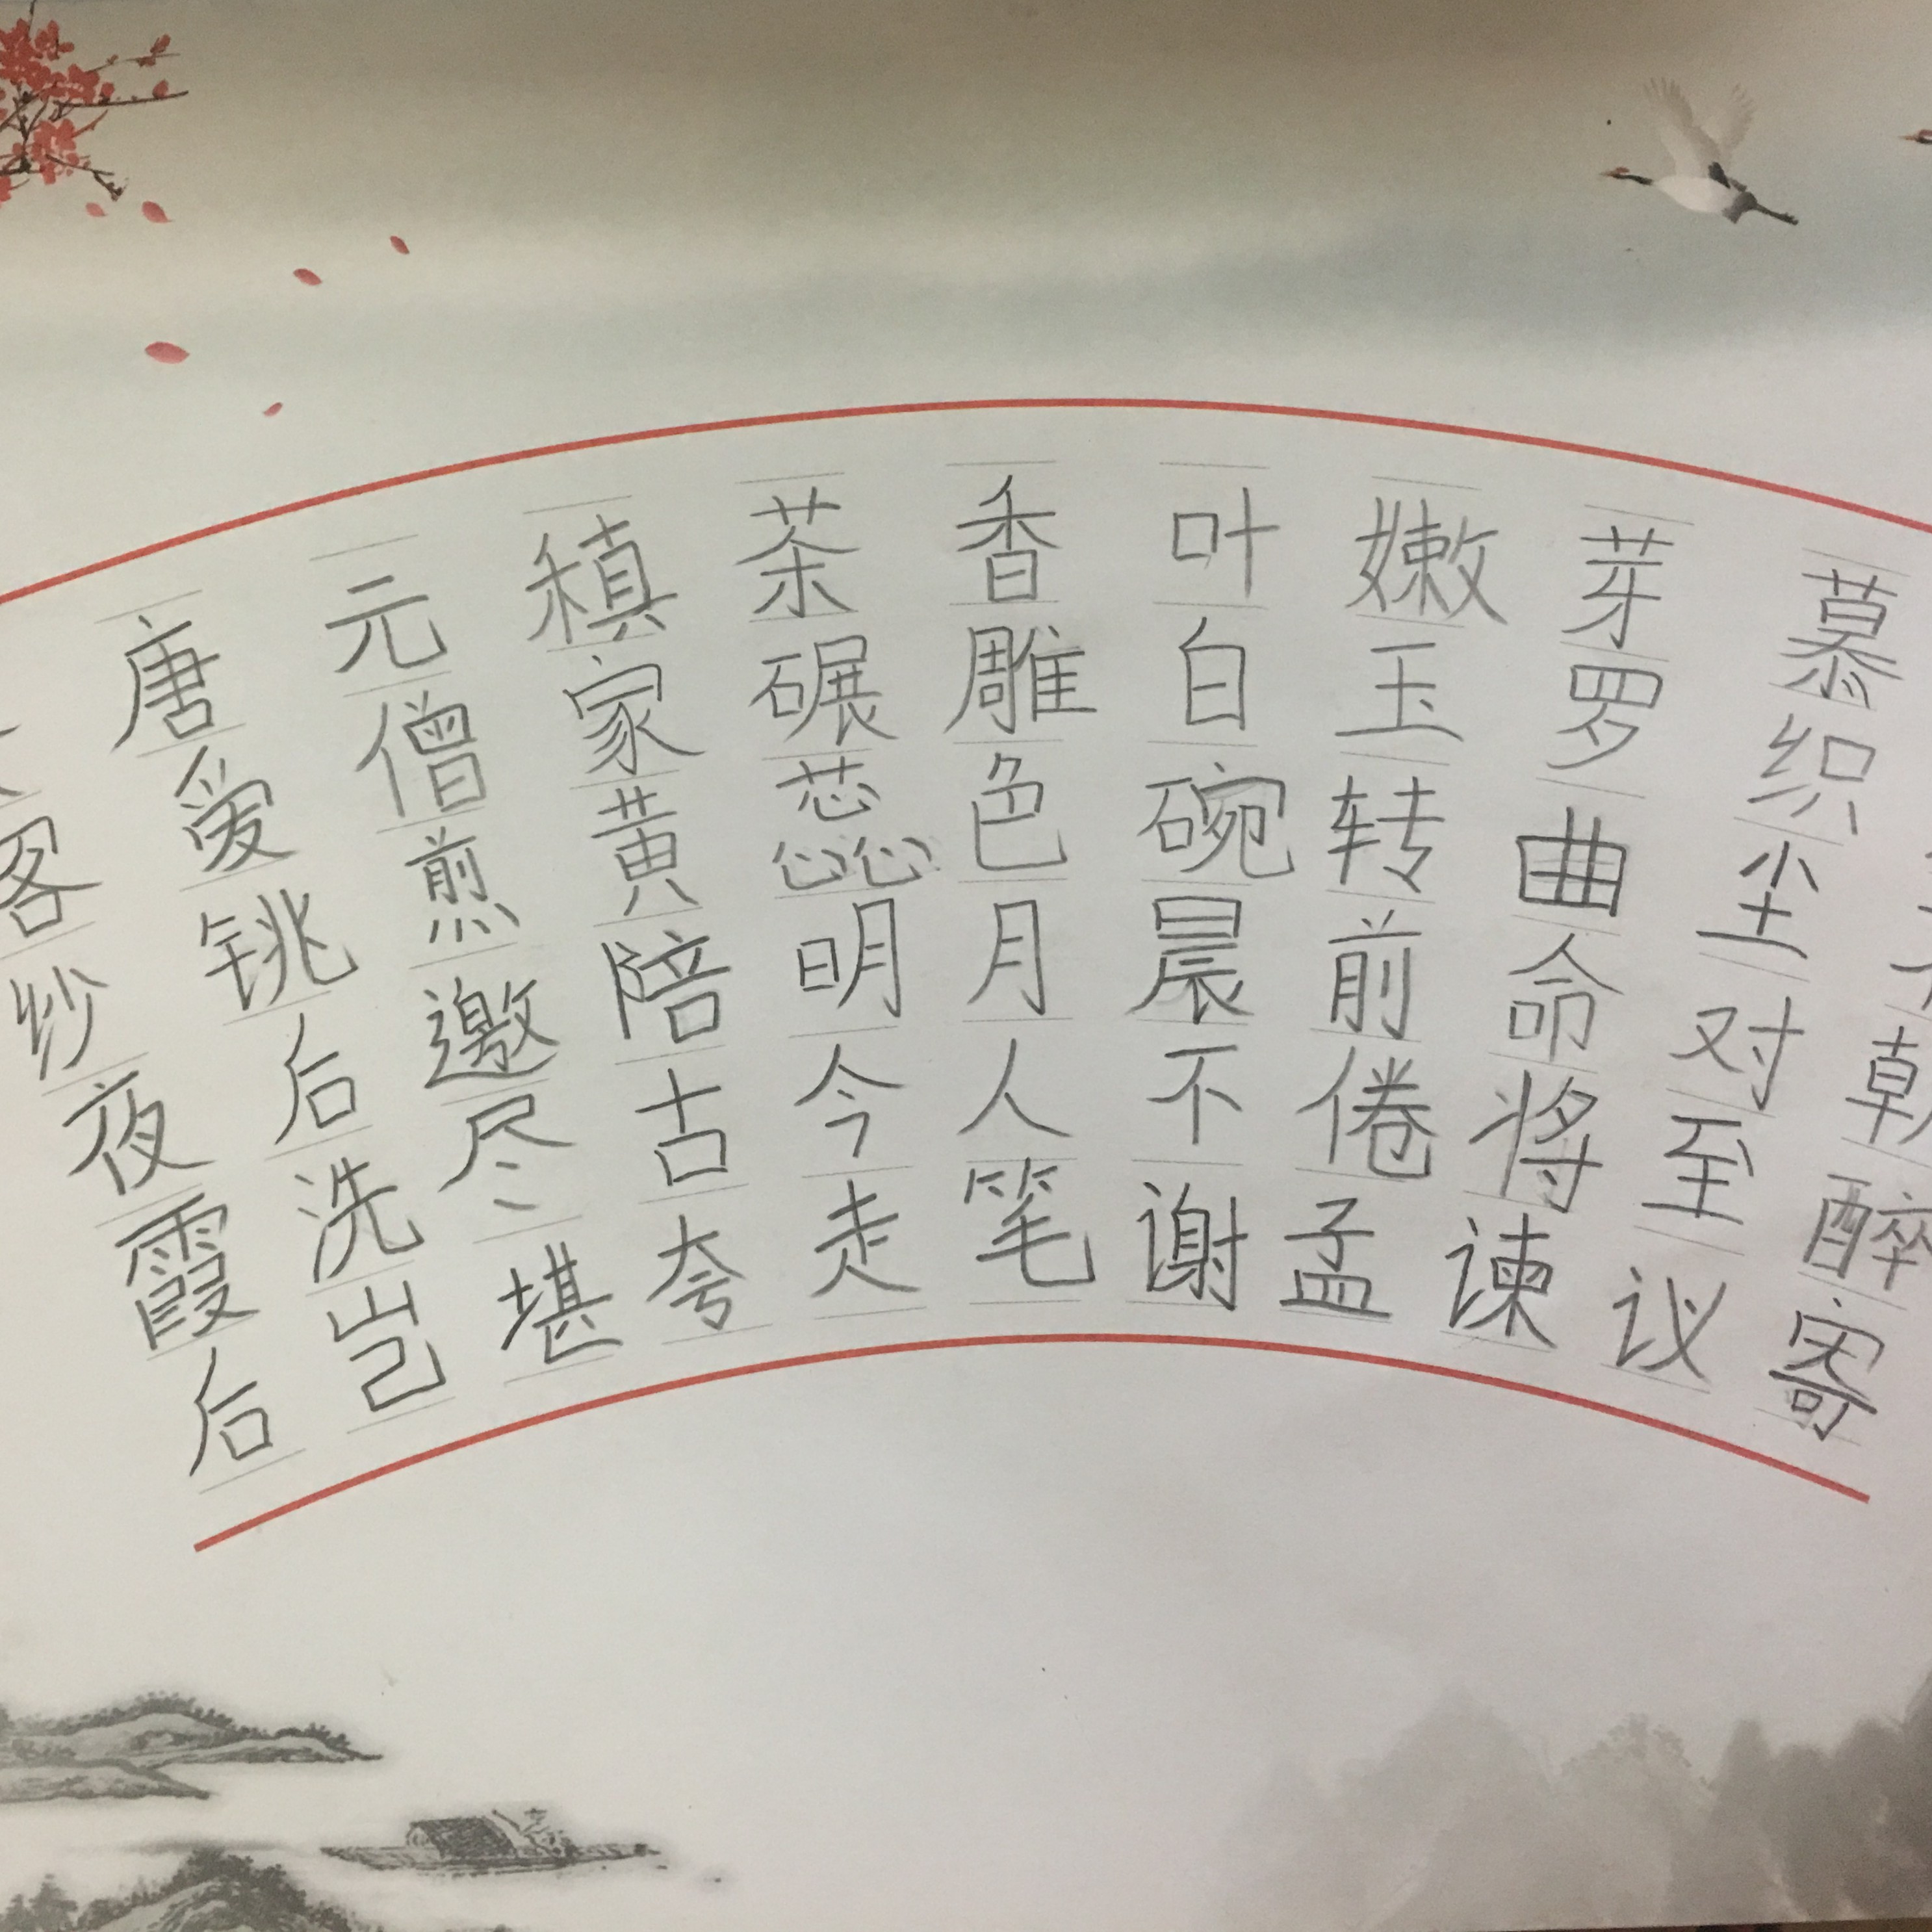 唐元稹茶香叶嫩芽慕
客爱僧家碾雕白玉罗织
纱铫煎黄蕊色碗转曲尘
夜后邀陪明月晨前命对朝
霞洗尽古今人不倦将至醉
后岂堪夸走笔谢孟谏议寄